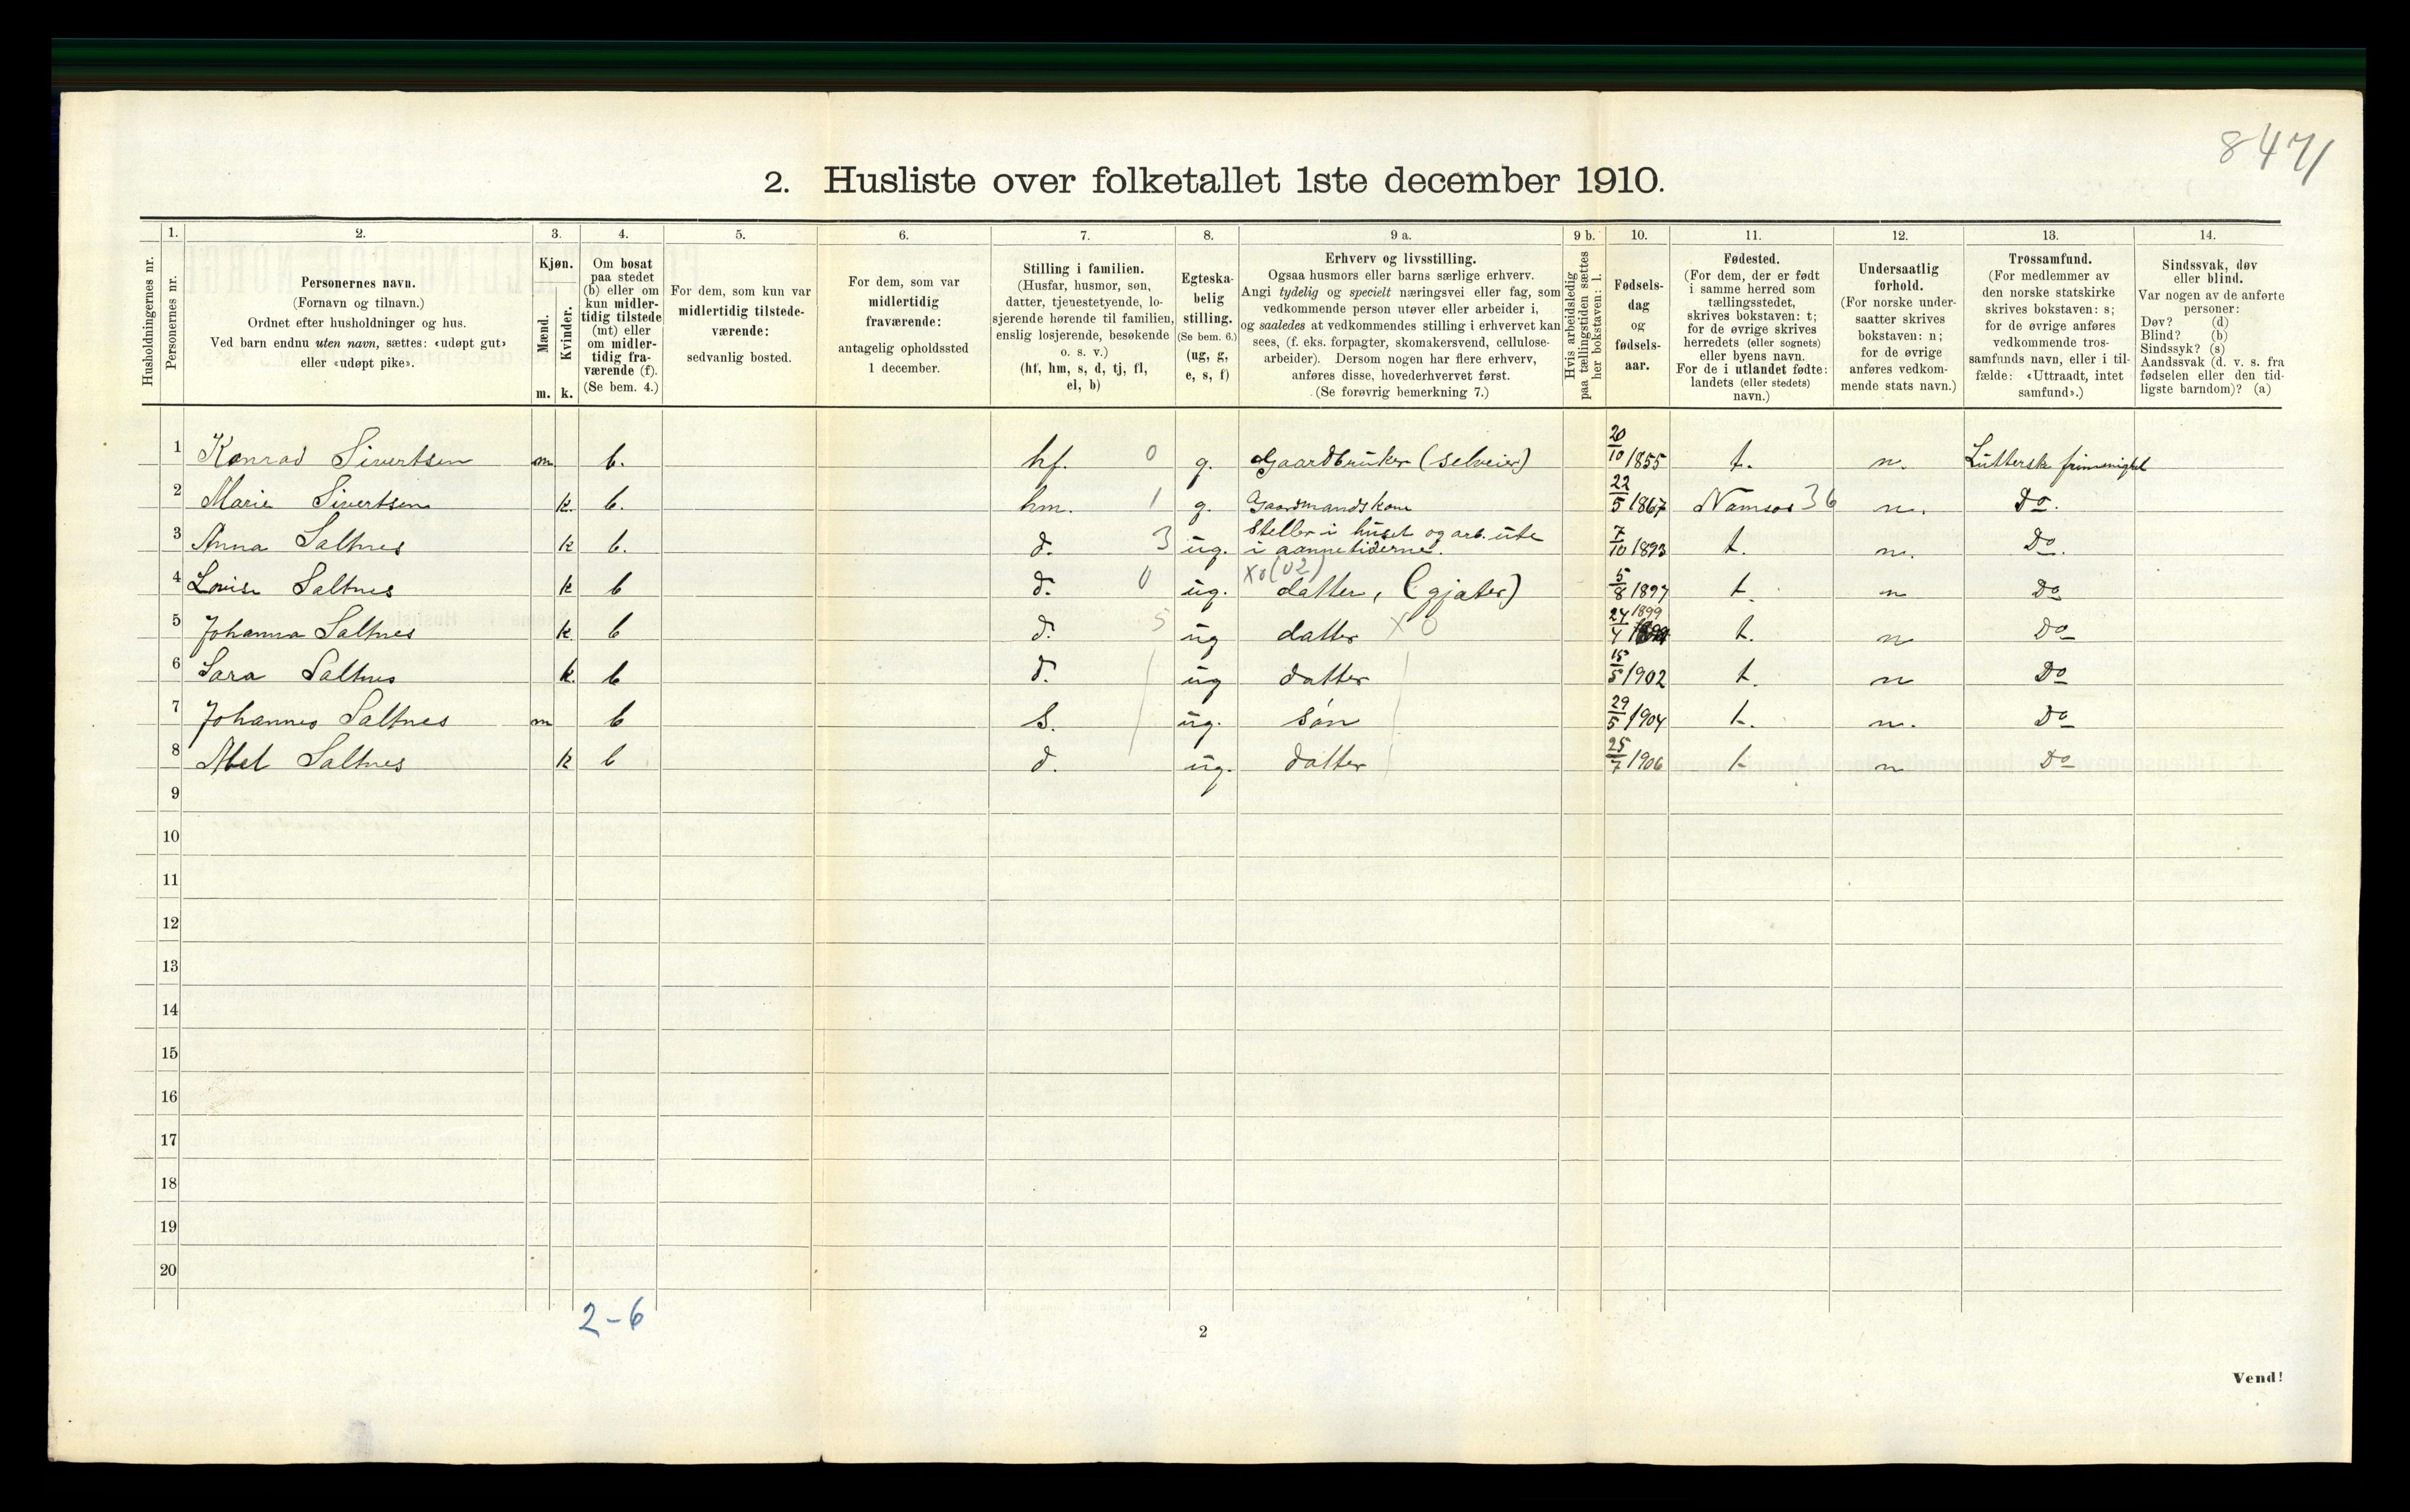 8471
2. Husliste over folketallet 1ste december 1910.
1. 2. 3. 4. 5. 6. 7. 8. 9 a. 9 b. 10. 11. 12. 13. 14.
Husholdningernes nr.
Personernes nr.
Personernes navn.
(Fornavn og tilnavn.)
Ordnet efter husholdninger og hus.
Ved barn endnu uten navn, sættes: «udøpt gut»
eller «udøpt pike».
Kjøn.
Mænd.
Kvinder.
m. k.
Om bosat
paa stedet
(b) eller om
kun midler-
tidig tilstede
(mt) eller
om midler-
tidig fra-
værende (f).
(Se bem. 4.)
For dem, som kun var
midlertidig tilstede-
værende:
sedvanlig bosted.
For dem, som var
midlertidig
fraværende:
antagelig opholdssted
1 december.
Stilling i familien.
(Husfar, husmor, søn,
datter, tjenestetyende, lo-
sjerende hørende til familien,
enslig losjerende, besøkende
o. s. v.)
(hf, hm, s, d, tj, fl,
el, b)
Egteska-
belig
stilling.
(Se bem. 6.)
(ug, g,
e, s, f)
Erhverv og livsstilling.
Ogsaa husmors eller barns særlige erhverv.
Angi tydelig og specielt næringsvei eller fag, som
vedkommende person utøver eller arbeider i,
og saaledes at vedkommendes stilling i erhvervet kan
sees, (f. eks. forpagter, skomakersvend, cellulose-
arbeider). Dersom nogen har flere erhverv,
anføres disse, hovederhvervet først.
(Se forøvrig bemerkning 7.)
Hvis arbeidsledig
paa tællingstiden sættes
her bokstaven: l.
Fødsels-
dag
og
fødsels-
aar.
Fødested.
(For dem, der er født
i samme herred som
tællingsstedet,
skrives bokstaven: t;
for de øvrige skrives
herredets (eller sognets)
eller byens navn.
For de i utlandet fødte:
landets (eller stedets)
navn.)
Undersaatlig
forhold.
(For norske under-
saatter skrives
bokstaven: n;
for de øvrige
anføres vedkom-
mende stats navn.)
Trossamfund.
(For medlemmer av
den norske statskirke
skrives bokstaven: s;
for de øvrige anføres
vedkommende tros-
samfunds navn, eller i til-
fælde: «Uttraadt, intet
samfund».)
Sindssvak, døv
eller blind.
Var nogen av de anførte
personer:
Døv? (d)
Blind? (b)
Sindssyk? (s)
Aandssvak (d. v. s. fra
fødselen eller den tid-
ligste barndom)? (a)
1 Konrad Sivertsen m b. hf. 0 g. Gaardbruker (selveier) 20/10 1855 t. n. Luttersk frimenighet
2 Marie Sivertsen k. b. hm. 1 g. Gaardmandskone 22/5 1867 Namsos 36 n. Do.
3 Anna Saltnes k b. d. 3 ug. Steller i huset og arb. ute
i aannetiderne. 7/10 1893 t. n. Do.
4 Lovise Saltnes k b d. 0 ug. X0(02) datter, (gjæter) 5/8 1897 t. n Do
5 Johanna Saltnes k b d. 5 ug datter X 0 24/4 1899 t. n Do
6 Sara Saltnes k. b d. ug datter 15/5 1902 t. n Do
7 Johannes Saltnes m b s. ug. søn 29/5 1904 t. n. Do
8 Abel Saltnes k b d. ug. datter 25/7 1906 t n Do
9
10
11
12
13
14
15
16
17
18
19
20
2-6
2
Vend!